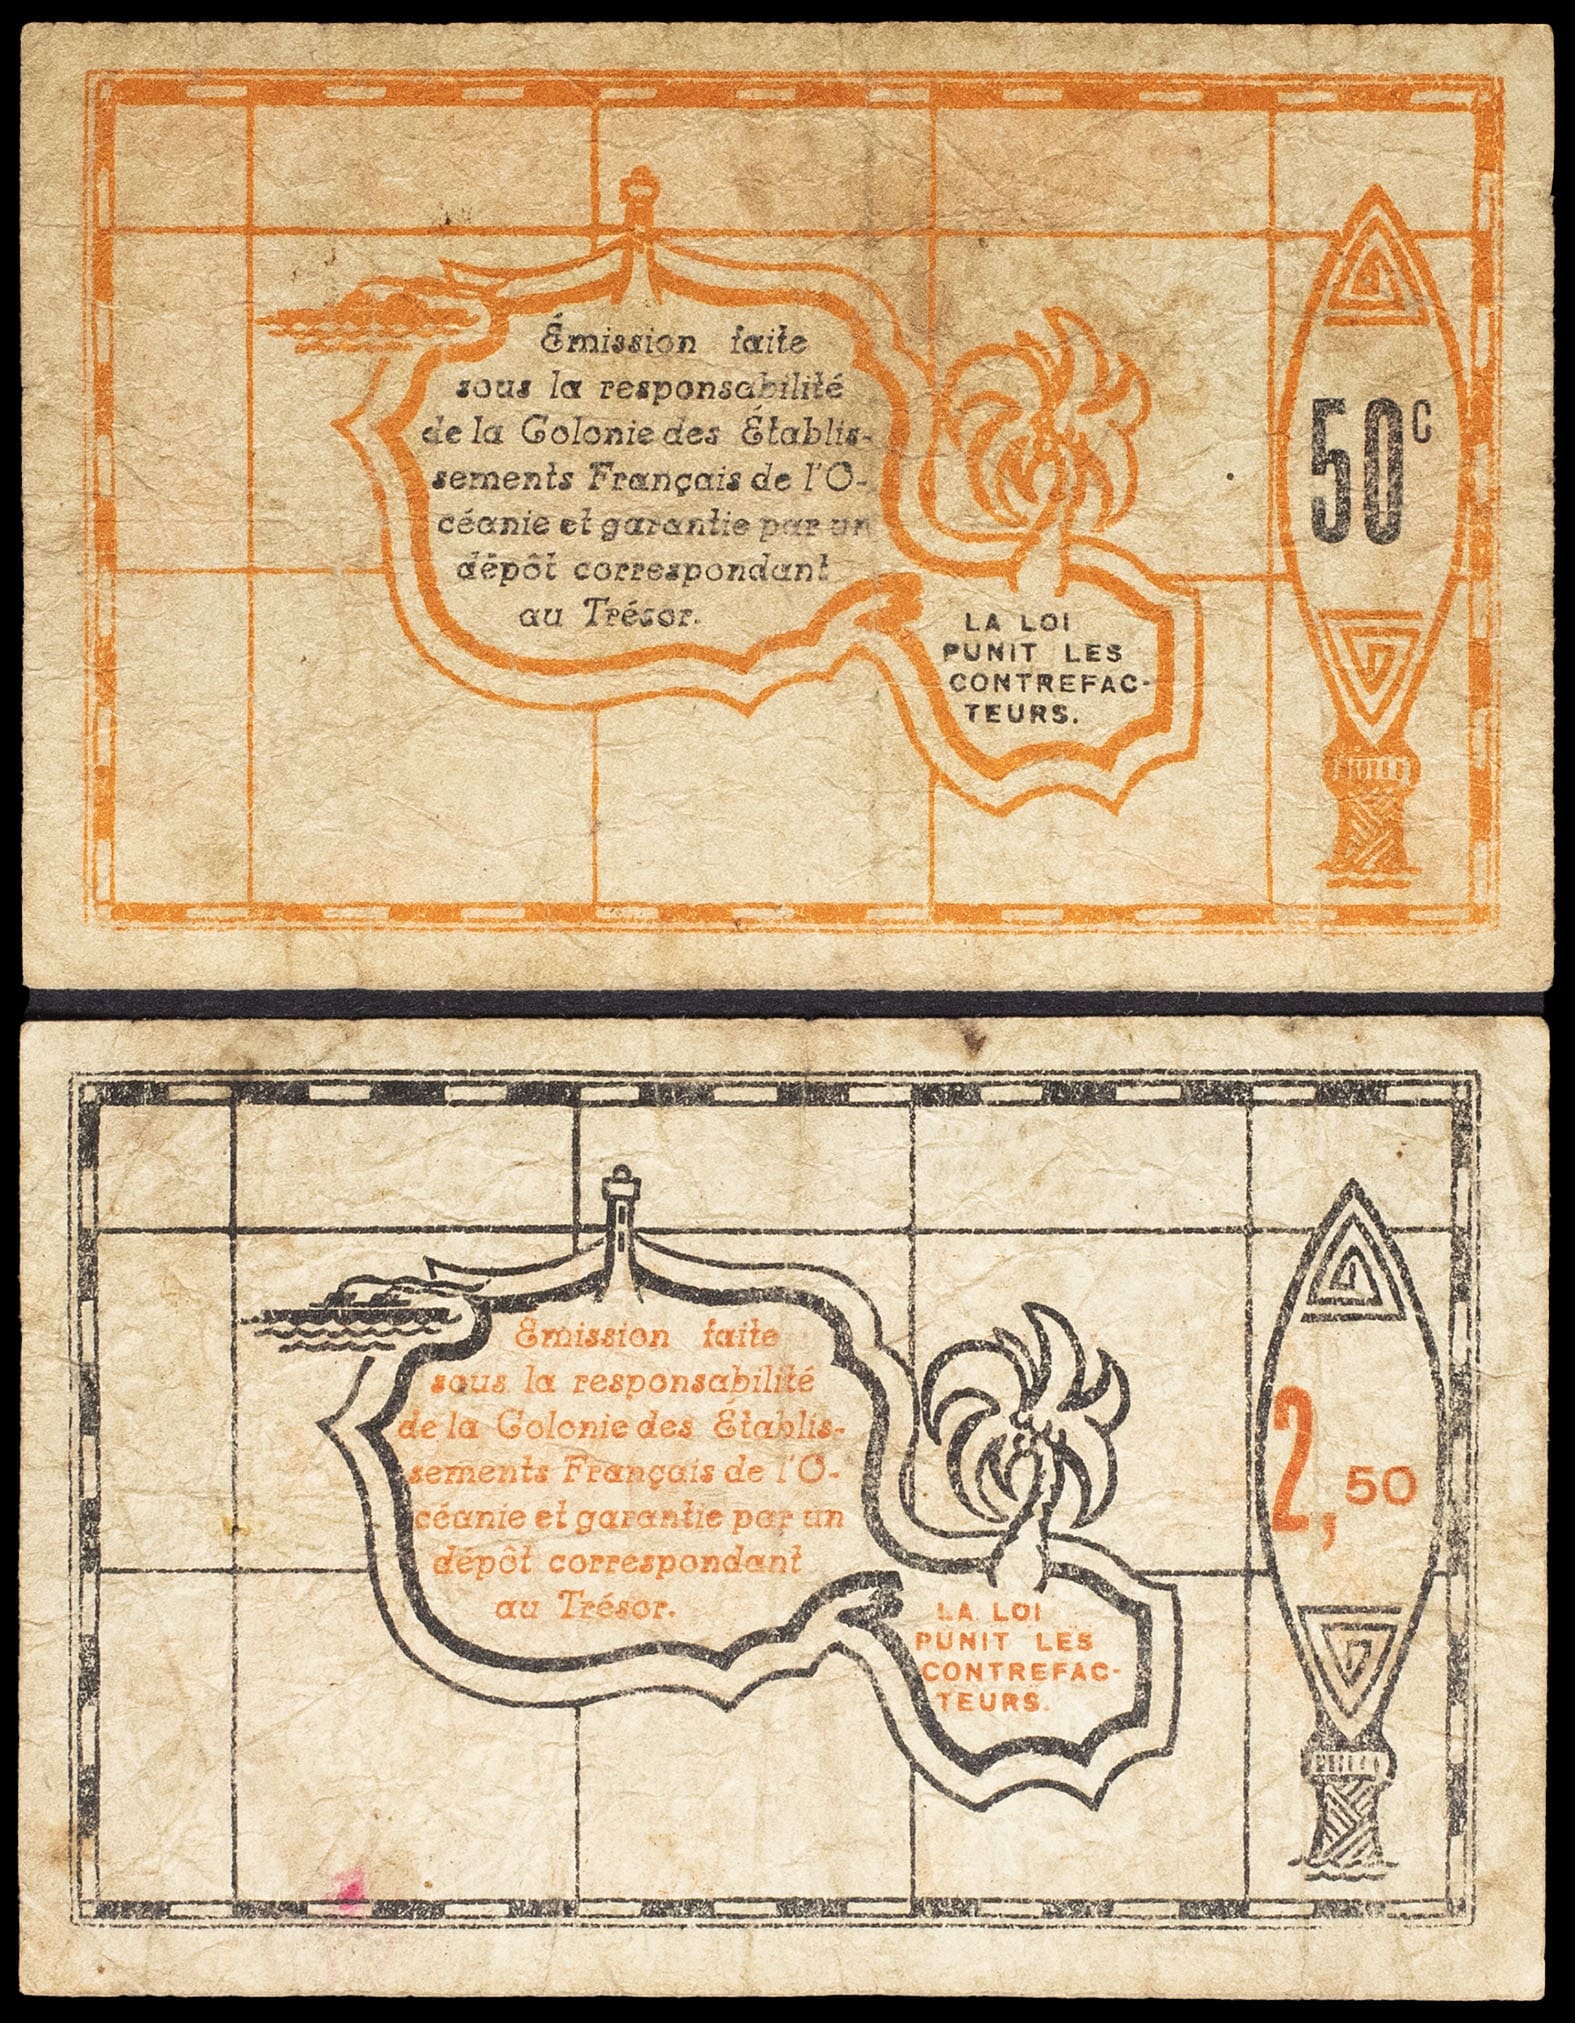 Émission faite
sous la responsabilité
de la Colonie des Établis-
sements Français de l'O-
céanie et garantie par un
dépôt correspondant
au Trésor.
LA LOI
PUNIT LES
CONTREFAC-
TEURS.
50c
Émission faite
sous la responsabilité
de la Colonie des Établis-
sements Français de l'O-
céanie et garantie par un
dépôt correspondant
au Trésor.
LA LOI
PUNIT LES
CONTREFAC-
TEURS.
2,50